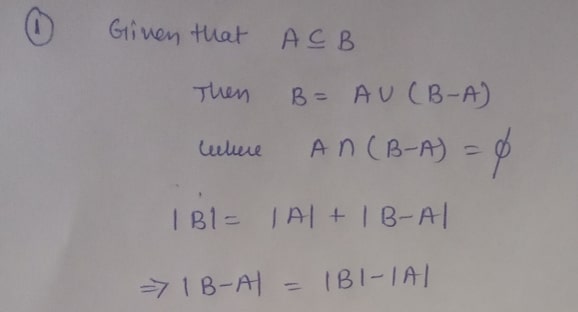 ① Given that A ⊆ B
Then B = A ∪ (B-A)
where A ∩ (B-A) = ϕ
|B| = |A| + |B-A|
⇒ |B-A| = |B|-|A|